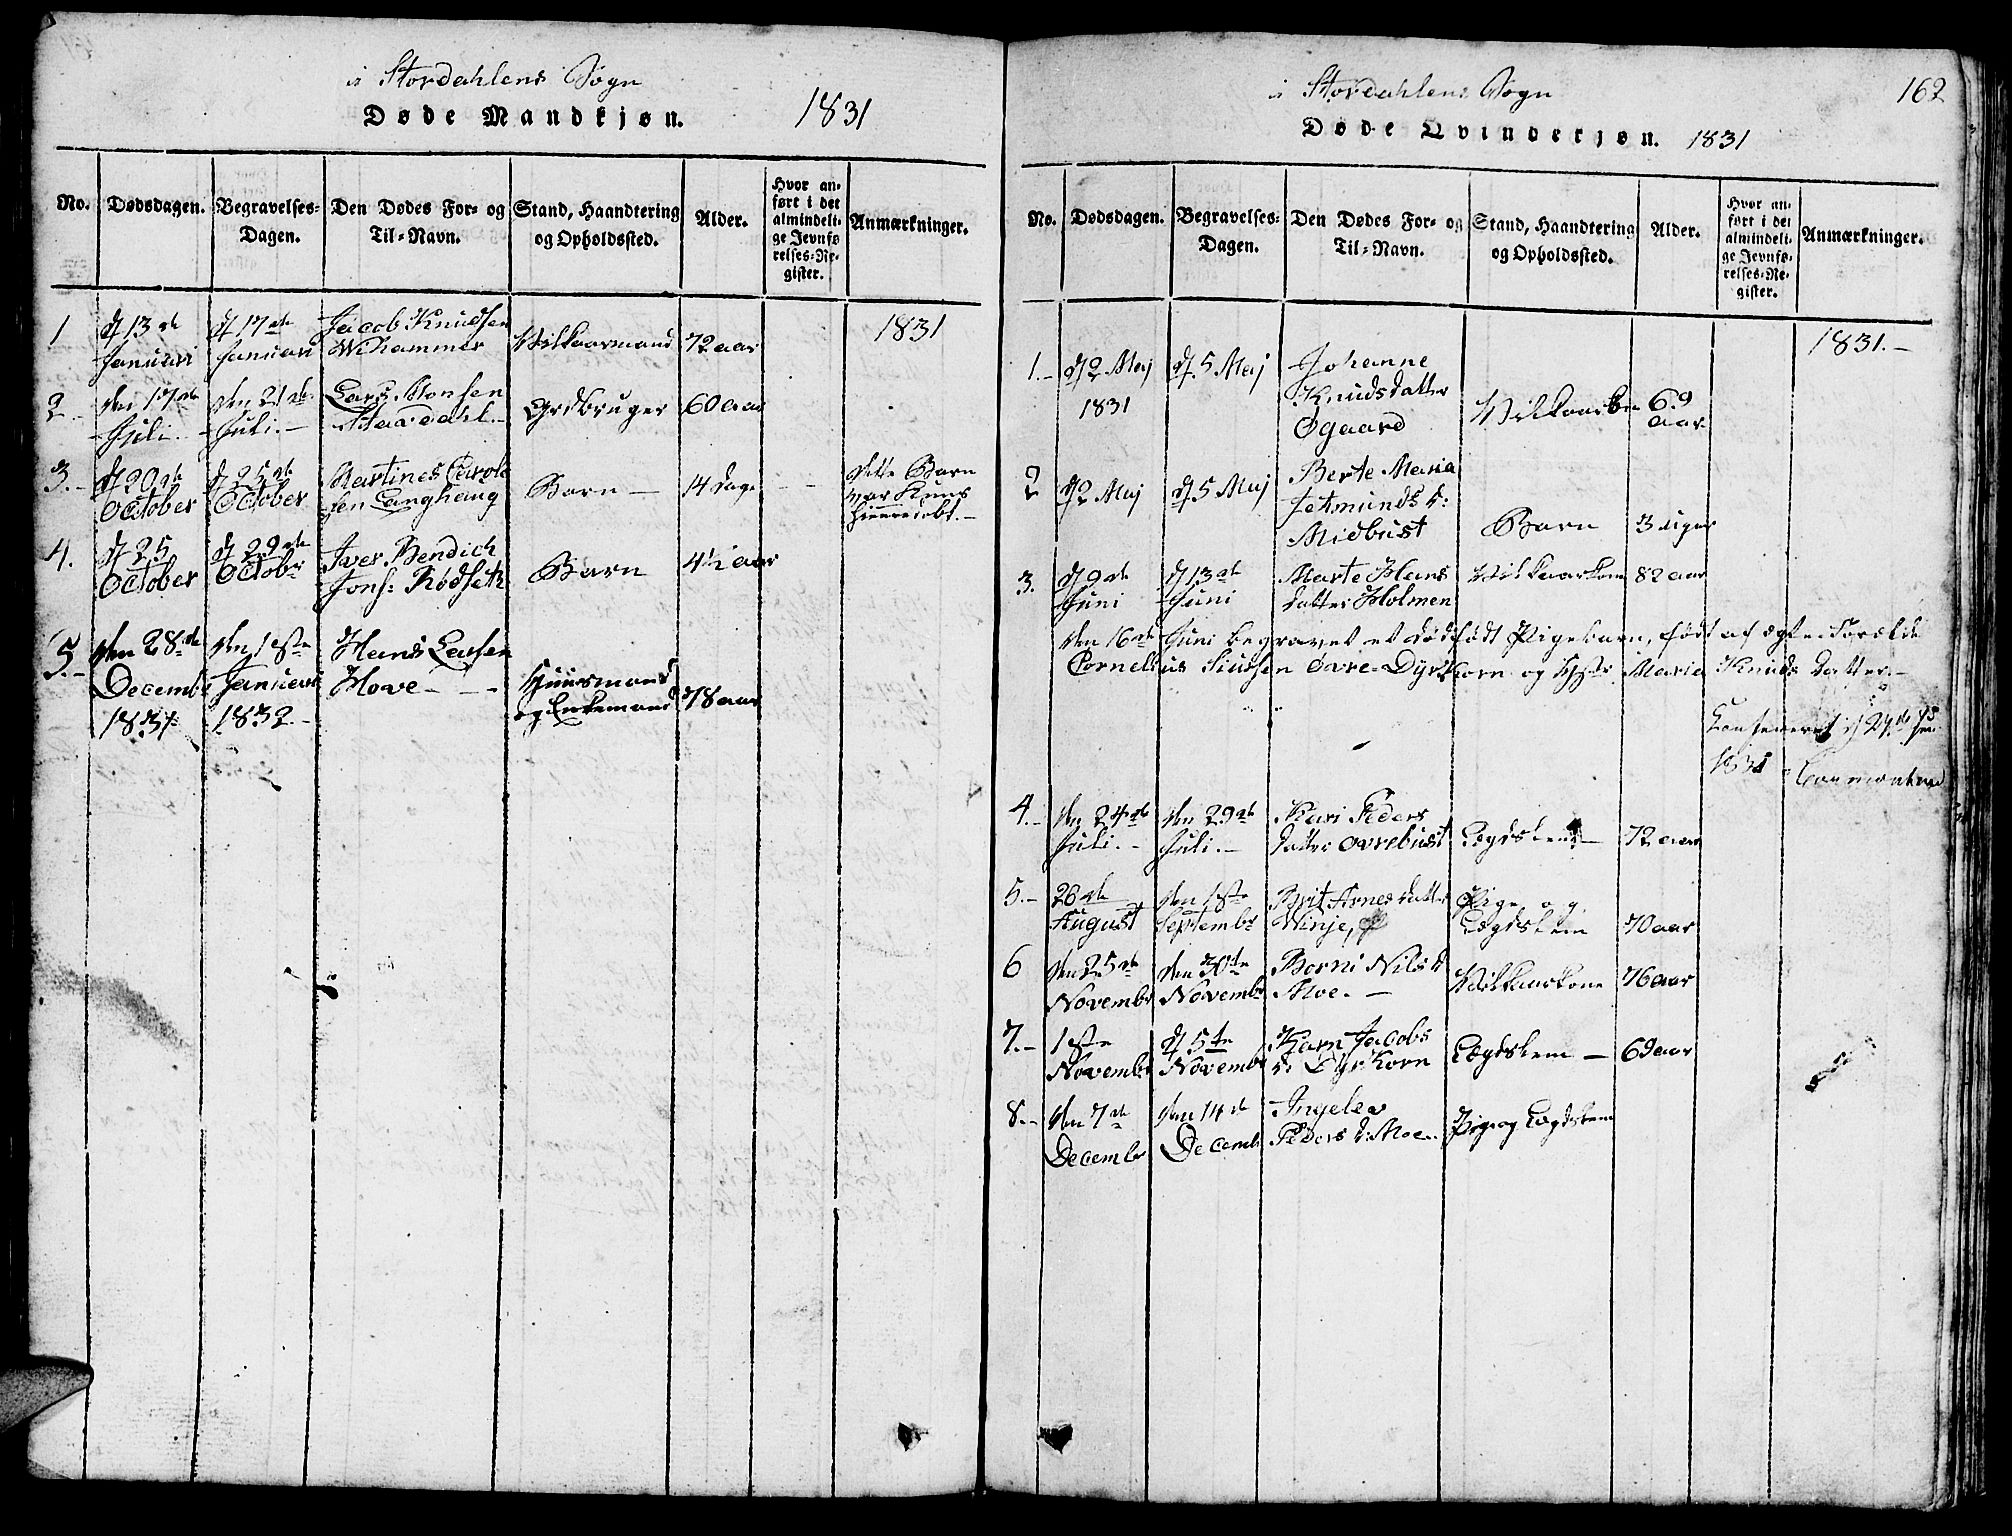 i Stordahlens Sogn
Døde Mandkjøn. 1831
No. Dødsdagen. Begravelses-Dagen. Den Dødes For- og Til-Navn. Stand, Haandtering og Opholdssted. Alder. Hvor anført i det almindelige Jevnførelses-Register. Anmærkninger.
1831
1 d 13de d 17de Jacob Knudsen
Januari Januari Wihammer Vilkaarmand 72 aar
2 den 17de den 21de Lars Monsen
Juli. Juli. Stavdahl. Grdbruger 60 aar
3. d 20de d 25de Martines Carol- dette Barn
October October sen Langhaug Barn 14 dage var Kuns
hiemedøbt.
4. d 25 d 29de Iver Bendich
October Octobr Jons: Rødseth Barn 4½ aar
5. den 28de den 1ste Hans Larsen
Decemb Januari Hove Huusmand
1831 1832 og Enkemand 78 aar
162
i Stordahlens Sogn
Døde Qvindekjøn. 1831
No. Dødsdagen. Begravelses-Dagen. Den Dødes For- og Til-Navn. Stand, Haandtering og Opholdssted. Alder. Hvor anført i det almindelige Jevnførelses-Register. Anmærkninger.
1831.
1. d 2 Maj d. 5 Maj Johanne
1831 Knudsdatter Vilkaark 69
Øgaard aar
2 d 2 Maj d 5 Maj Berte Maria
Jetmunds d:
Midbust Barn 3 uger
3. d 9de d 13de Marte Hans Vilkaarkone 82 aar
Juni Juni datter Holmen
den 16de Juni begravet et dødfødt Pigebarn, født af ægte Forælde
Cornelius Siursen Øvre-Dyrkorn og Hstr Maria Knuds datter
d 27de
1831
4. den 24de den 29de Kari Peders
Juli. Juli. datter Øvrebust Lægdslem 72 aar
5. 26de den 1ste Brit Arnes datter Pige og
August Septembr Winje, Lægdslem 70 aar
6 den 25de den 30te Borni Nils d
Novembr Novembr Moe. Vilkaarkone 76 aar
7. 1ste d 5te Karn Jacobs
Novembr Novembr d. Dyrkorn Lægdslem 69 aar
8. den 7de den 14de Ingelev
Decembr Decemb Peders d: Moe. Pige og Lægdslem